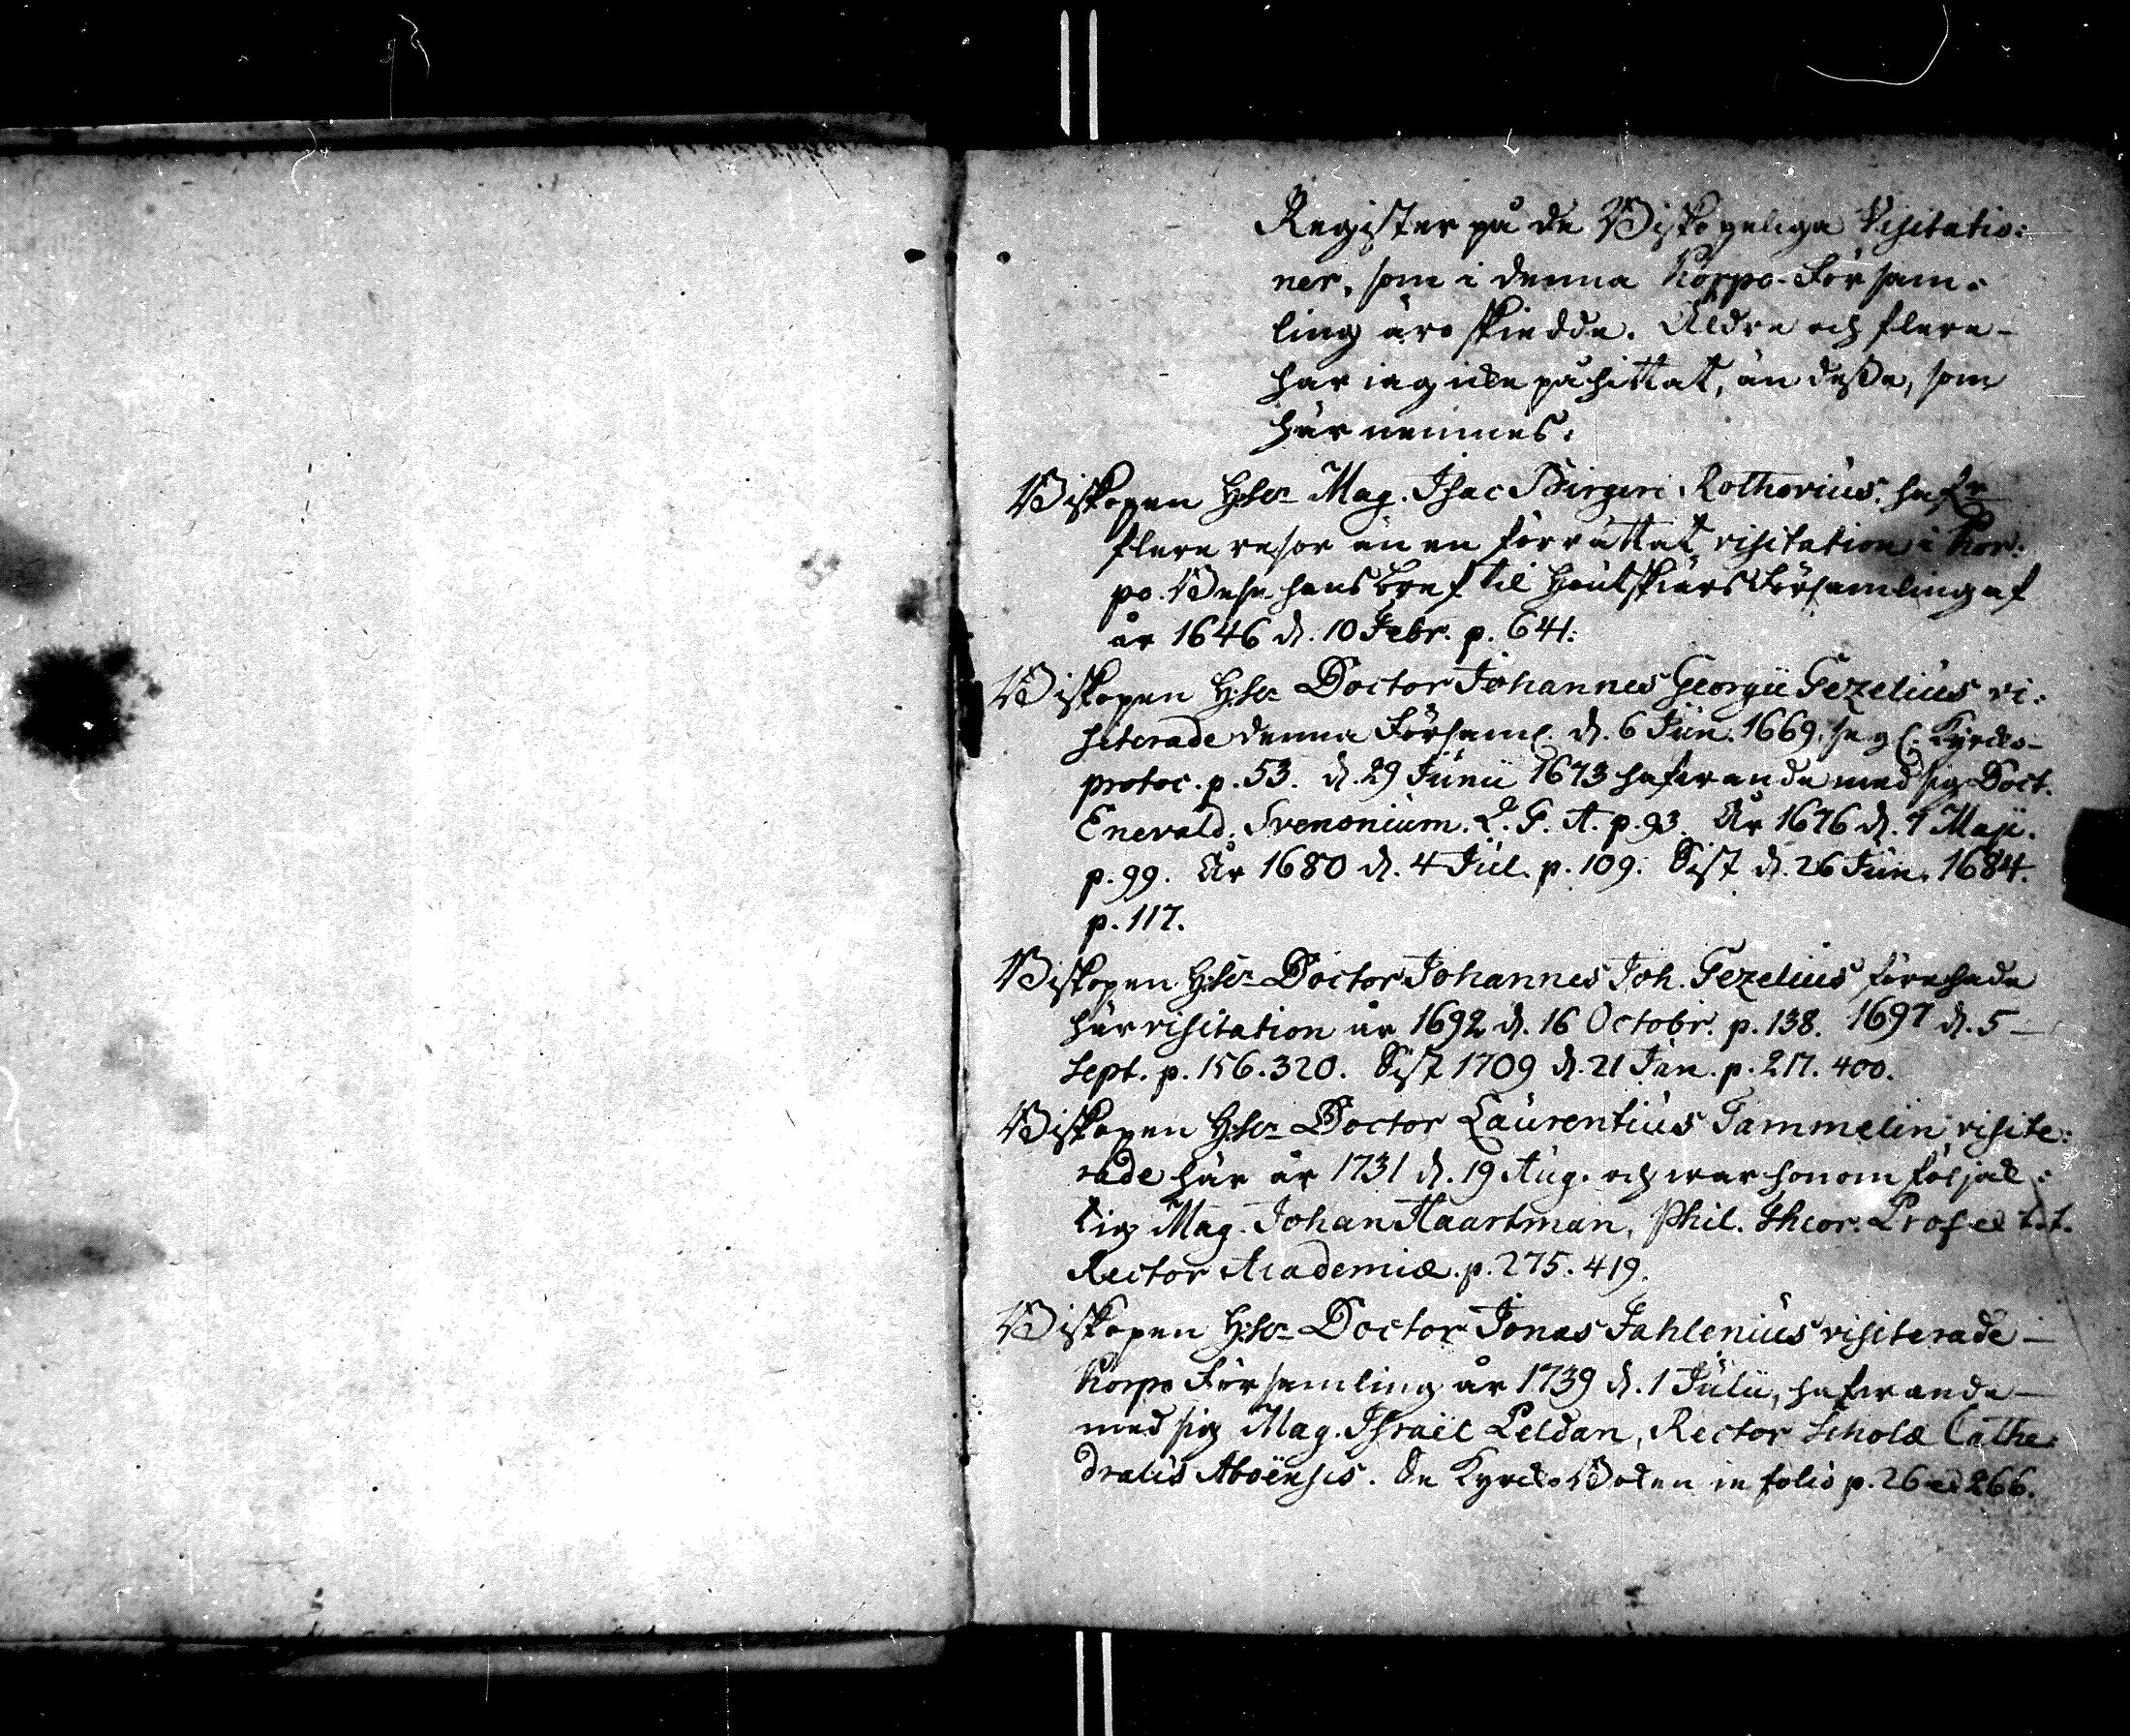 Register på de Biskopeliga Visitatio:
ner, som i denna Korpo-Försam:
ling äro skiedde. Äldre och flere
har iag icke påhittat, än desse, som
här nemnes:
Biskopen H:er Mag. Isac Birgeri Rothovius, hafr
flere resor än en förrättat visitation i Kor:
po. Bese hans bref til Houtskiärs Församling af
år 1646 d. 10 Febr. p. 641.
Biskopen H:er Doctor Johannes Georgii Gezelius vi:
siterade denna Församl. d. 6 Jun. 1669. Kyrcko-
protoc. p. 53. d. 29 Junii 1673 hafvande med sig Doct.
Enevald. Svenonium. L. G. A. p. 93. År 1676 d. 7 Maji.
p. 99. År 1680 d. 4 Jul. p. 109. Sist d. 26 Jun. 1684.
p. 117.
Biskopen H:er Doctor Johannes Joh. Gezelius förehade
här visitation år 1692 d. 16 Octobr. p. 138. 1697 d. 5
Sept. p. 156. 320. Sist 1709 d. 21 Jan. p. 217. 400.
Biskopen H:er Doctor Laurentius Tammelin visite:
rade här år 1731 d. 19 Aug. och war honom följack:
tig Mag. Johan Haartman, Phil. Theor. Prof. et t.t.
Rector Academiæ. p. 275. 419.
Biskopen H:er Doctor Jonas Fahlenius visiterade
Korpo Församling år 1739 d. 1 Julii, hafwande
med sig Mag. Israël Peldan, Rector Scholæ Cathe:
dralis Aboënsis. Se Kyrcko Boken in folio p. 26 et 266.